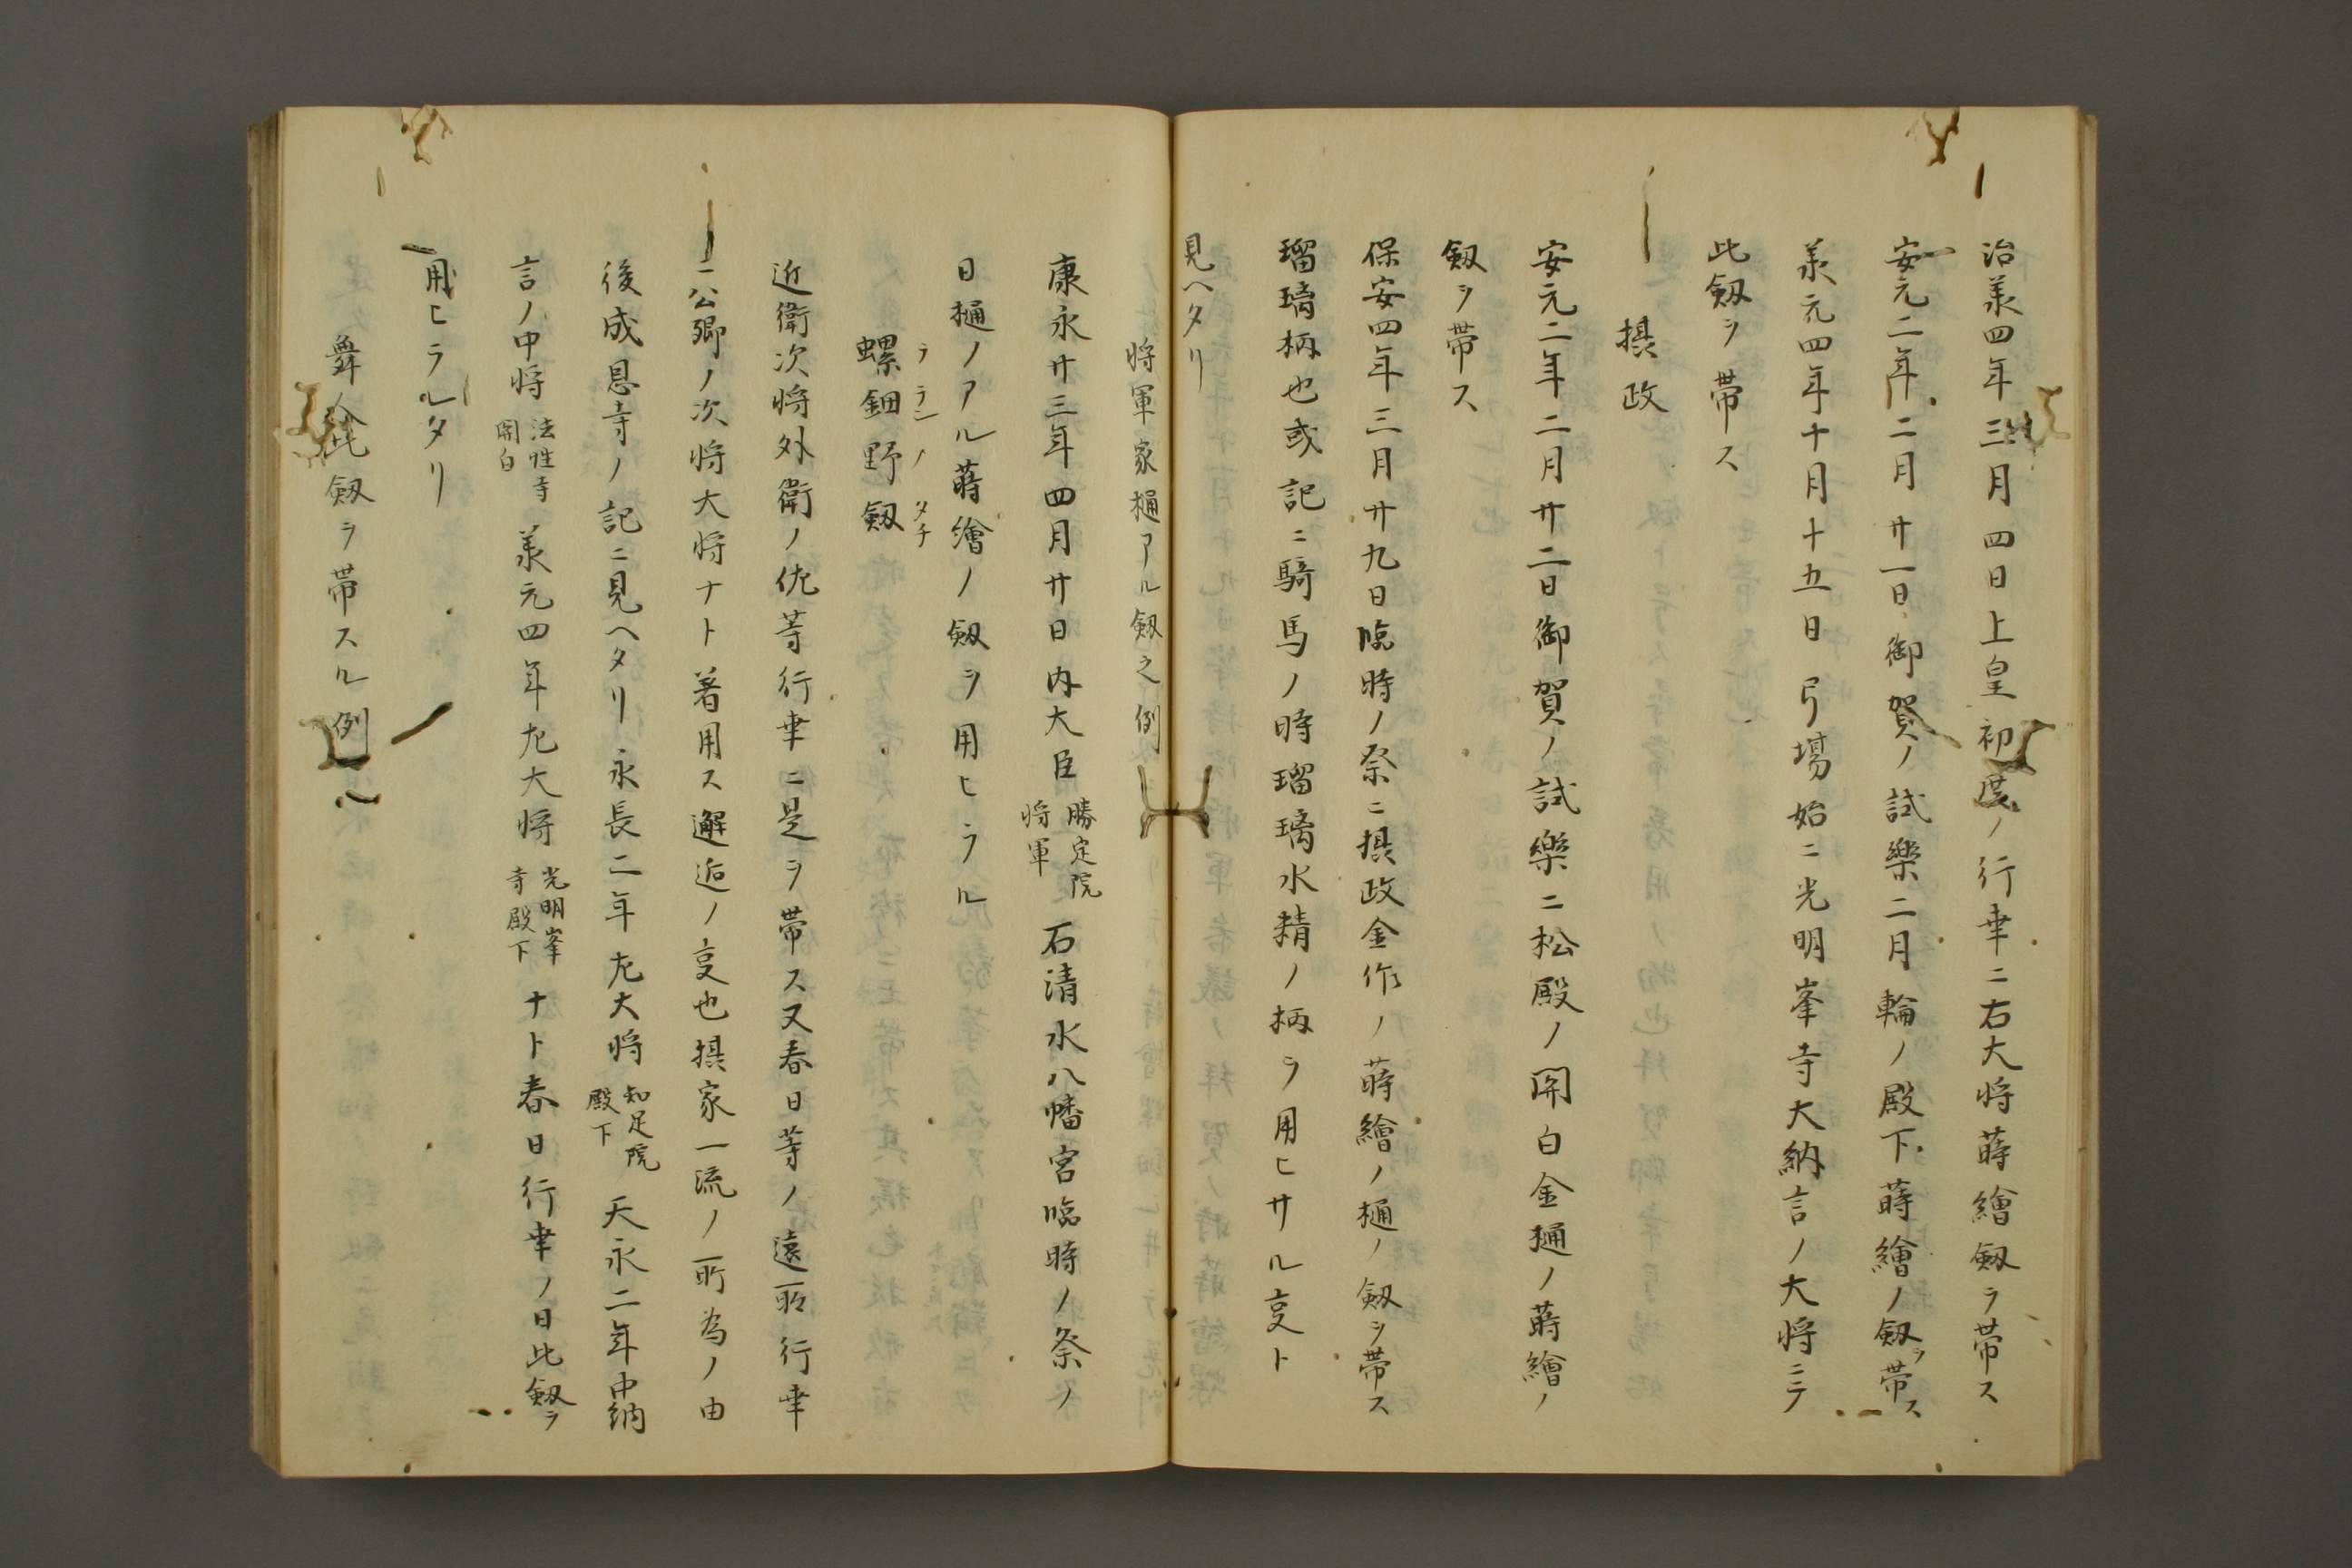 治羕四年三月四日上皇初度ノ行幸ニ右大将蒔繪釼ヲ帯ス
安元二年二月廿一日御賀ノ試樂二月輪ノ殿下蒔繪ノ釼ヲ帯ス
羕元四年十月十五日弓場始ニ光明峯寺大納言ノ大将ニテ
此釼ヲ帯ス
摂政
安元二年二月廿二日御賀ノ試樂ニ松殿ノ関白金樋ノ蒔繪ノ
釼ヲ帯ス
保安四年三月廿九日臨時ノ祭ニ摂政金作ノ蒔繪ノ樋ノ釼ヲ帯ス
瑠璃柄也或記ニ騎馬ノ時瑠璃水精ノ柄ヲ用ヒサル㕝ト
見ヘタリ
将軍家樋アル釼之例
康永廿三年四月廿日内大臣勝定院将軍石清水八幡宮臨時ノ祭ノ
日樋ノアル蒔繪ノ釼ヲ用ヒラル
螺鈿野釼ラテンノタチ
近衛次将外衛ノ佐等行幸ニ是ヲ帯ス又春日等ノ遠所行幸
ニ公卿ノ次将大将ナト著用ス邂逅ノ㕝也摂家一流ノ所為ノ由
後成恩寺ノ記ニ見ヘタリ永長二年左大将知足院殿下天永二年中納
言ノ中将法性寺関白羕元四年左大将光明峯寺殿下ナト春日行幸ノ日此釼ヲ
用ヒラルタリ
舞人此釼ヲ帯スル例